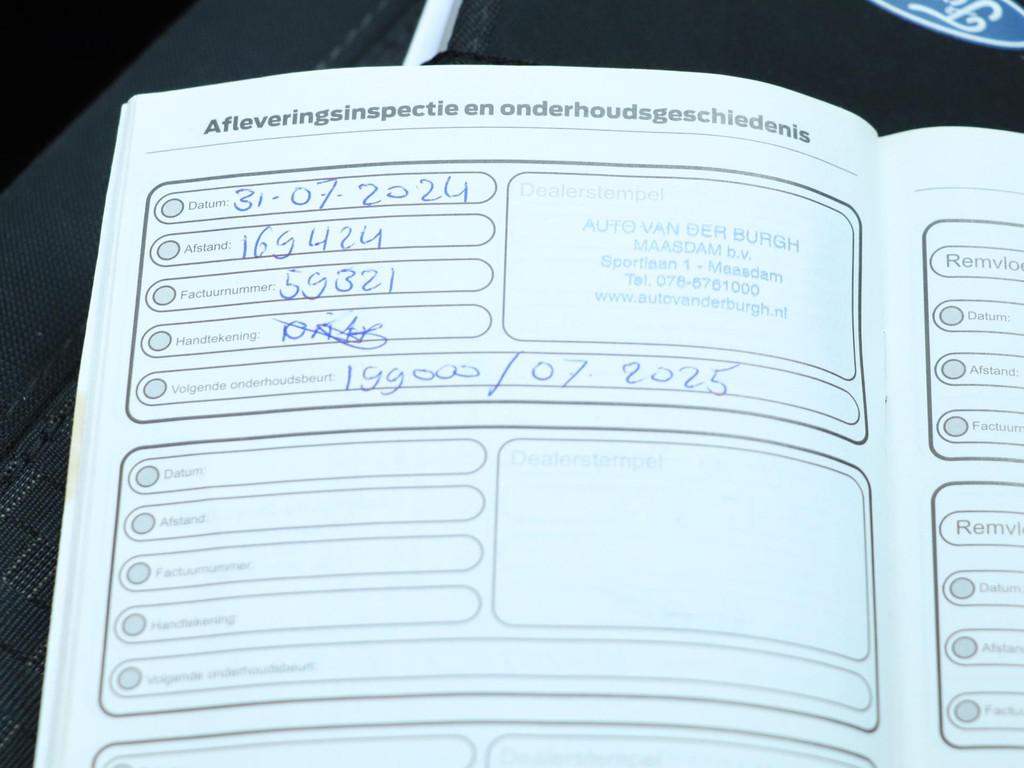 Afleveringsinspectie en onderhoudsgeschiedenis
Datum: 31-07-2024
Afstand: 169424
Factuurnummer: 59321
Handtekening:
Volgende onderhoudsbeurt: 199000 / 07. 2025
Dealerstempel
AUTO VAN DER BURGH
MAASDAM b.v.
Sportlaan 1 - Maasdam
Tel. 078-6761000
www.autovanderburgh.nl
Datum:
Afstand:
Factuurnummer:
Handtekening:
Volgende onderhoudsbeurt:
Dealerstempel
Dealerstempel
Datum:
Afstand:
Datum: